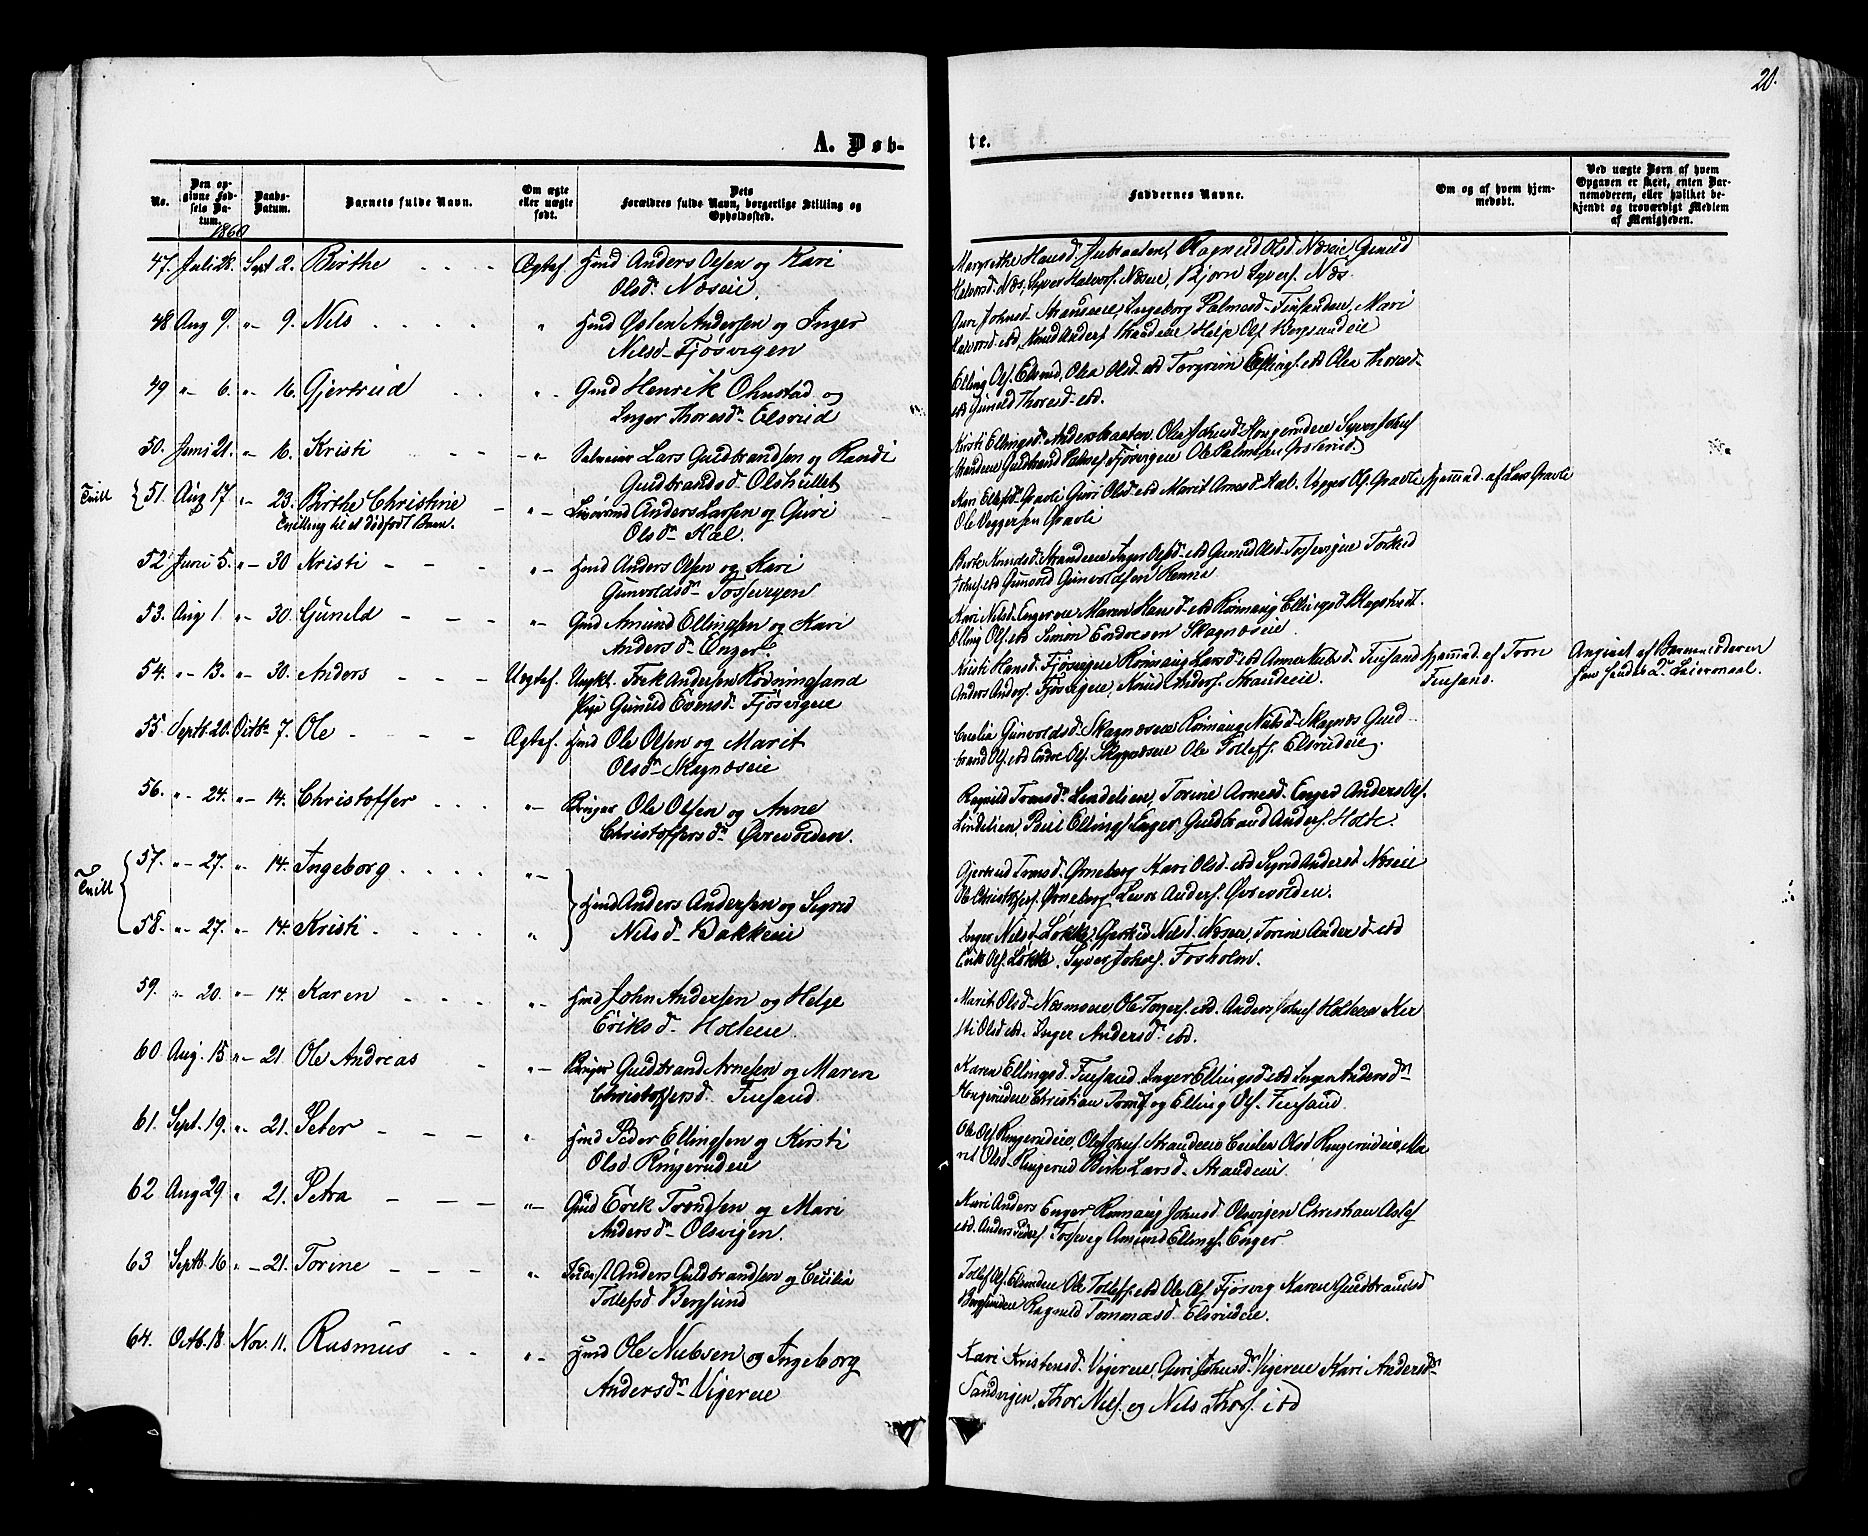 20.
A. Døb-
te.
No.
Den op-
givne Fød-
sels Da-
tum.
Daabs-
Datum.
Barnets fulde Navn.
Om ægte
eller uægte
født.
Dets
Forældres fulde Navn, borgerlige Stilling og
Opholdssted.
Faddernes Navne.
Om og af hvem hjem-
medøbt.
Ved uægte Børn af hvem
Opgaven er skeet, enten Bar-
nemoderen, eller hvilket be-
kjendt og troværdigt Medlem
af Menigheden.
1860
47. Juli 28. Sept 2. Birthe Ægtef. Hmd Anders Olsen og Kari
Olsd. Næseie.
Margrethe Hansd. Ragnild Olsd. Næseie, Gunild
Halvorsd. Næs, Syver Halvors. Næseie, Bjørn Syvers. Næs.
48 Aug 9. " 9. Nils " Hmd Østen Andersen og Inger
Nilsd. Fjøsvigen
Guri Johnsd. Strandeie, Ingeborg Palmesd. Finsandeie, Mari
Halvorsd. ibd, Knud Anders. Strandeie Helge Ols. Bergsundeie
49 " 6. " 16. Gjertrud " Gmd Henrik Ohnstad og
Inger Thoresdr. Elsrud
Elling Ols. Elsrud, Olea Olsd. ibd Torgrim Ellings. ibd Olea Thoresd.
ibd Gunild Thoresd. ibd.
50. Juni 21. " 16. Kristi " Lars Guldbrandsen og Randi
Guldbrandsd. Olshullet
Kirsti Ellingsd. Andersbraaten. Olea Johnsd. Hougerudeie Syver Johns.
Strandeie Guldbrand Palmes. Fjøsvigeie Ole Palmesen
Tvill { 51. Aug 17 " 23. Birthe Christine " Anders Larsen og Guri
Tvilling til et dødfødt Barn.
Olsdr. Hæl.
Kari Ellefsd. Gravli Guri Olsd. ibd Marit Arnesd. Hæl. Vegger Ols. Gravli
Ole Veggersen Gravli
Hjemmd. af Lars Gravli
52 Juni 5. " 30 Kristi " Hmd Anders Olsen og Kari
Gunvoldsdr. Tossevigen
Birte Knudsd. Strandeie Inger Olsd. ibd Gunild Olsd. Tossevigeie Torkild
Johns. ibd Gunvold Gunvoldsen
53. Aug 1 " 30. Gunild " Gmd Amund Ellingsen og Kari
Andersd. Enger.
Kari Nilsd. Engereie Maren Hansd. ibd Rønnaug Ellingsd.
Elling Ols. ibd Simon Endresen Skagnæseie.
54. " 13. " 30. Anders Uægtef. Ungk. Erik Andersen Rødningsand
Pige Gunild Evensd. Fjøsvigeie
Kristi Hansd. Fjøsvigeie Rønnaug Larsd. ibd Anne Nilsd. Finsand
Anders Anders. Fjøsvigeie, Knud Anders. Strandeie.
Hjemmd. af Tron
Finsand.
Angivet af Barnemoderen
55 Septb. 20. Octbr 7. Ole Ægtef. Hmd Ole Olsen og Marit
Olsdr. Skagnæseie
Cecelia Gunvoldsd. Skagnæseie Rønnaug Nilsd. Skagnæs Guld-
brand Ols. ibd Endre Ols. Skagnæseie Ole Tollefs. Elsrudeie.
56. " 24. " 14. Christoffer " Bruger Ole Olsen og Anne
Christoffersdr. Øvrevolden.
Ragnild Tronsdr. Lindelien, Torine Arnesd. Enger Anders Ols.
Lindelien, Ellings. Enger, Guldbrand Anders. Holte.
Tvill { 57. " 27. " 14. Ingeborg " Hmd Anders Andersen og Sigrid
Nilsd. Bakkeie
Gjertrud Tronsd. Ørneberg Kari Olsd. ibd Sigrid Andersd. Næseie
Ole Christoffers. Ørneberg Anders. Øvrevolden.
58. " 27. " 14. Kristi "
Inger Nilsd. Løkke, Gjertrud Nilsd. Næseie, Torine Andersd. ibd
Erik Ols. Løkke, Syver Johns. Fosholm.
59. " 20. " 14. Karen " Hmd John Andersen og Helge
Eriksd. Holteeie
Marit Olsd. Næsmoeie Ole Torgers. ibd. Anders Johns. Holteeie Kir
sti Olsd. ibd. Inger Andersdr. ibd.
60 Aug. 15 " 21. Ole Andreas " Bruger Guldbrand Arnesen og Maren
Christoffersd. Finsand.
Karen Ellingsd. Finsand. Inger Ellingsd. ibd Inger Andersdr
Hougerudeie Christian Tronds. og Elling Ols. Finsand.
61. Sept. 19. " 21. Peter " Hmd Peder Ellingsen og Kirsti
Olsd. Ringerudeie
Ole Ols. Ringerudeie, Ole Johns. Strandeeie Cecilia Olsd. Ringerudeie, Ma
rit Olsd. Ringerud Birte Larsd. Strandeie.
62 Aug 29 " 21. Petra " Gmd Erik Trondsen og Mari
Andersdr. Olsvigen.
Kari Anders Enger Rønnaug Johnsd. Olsvigen Christian Aslef
ibd. Anders Peders. Tossevig Amund Ellings. Enger.
63 Septb. 16 " 21. Torine " Anders Guldbrandsen og Cecilia
Tollefsd. Bergsund
Tollef Ols. Elsrudeie Ole Tollefs. ibd Ole Ols. Fjøsvig Karen Guldbrandsd
Bergsundeie Ragnild Tommæsd. Elsrudeie.
64. Octb. 18. Nov. 11. Rasmus " Hmd Ole Nielsen og Ingeborg
Andersdr. Vigereie
Kari Kristensd. Vigereie, Guri Johnsdr. Vigereie Kari Andersdr
Sandvigen, Thor Niels. og Nils Thors. ibd